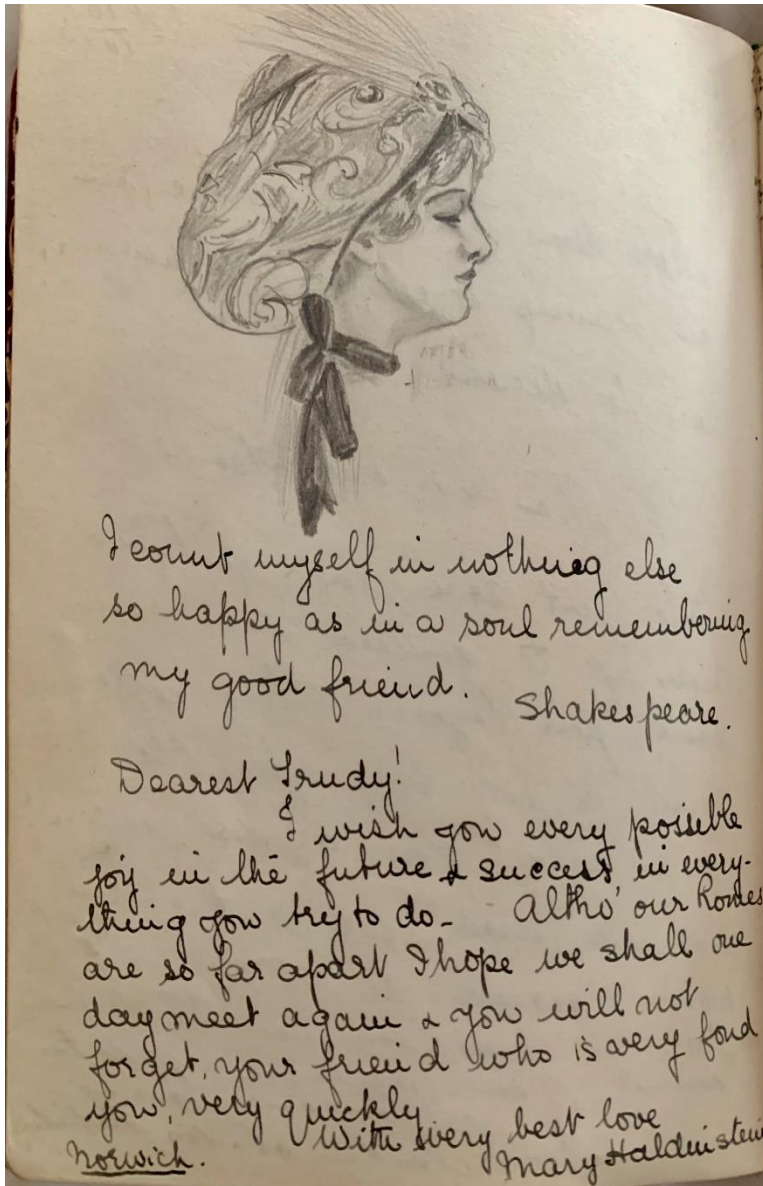 I count myself in nothing else
so happy as in a soul remembering
my good friend.
Shakespeare.
Dearest Trudy!
I wish you every possible
joy in the future & success in every-
thing you try to do - Altho' our homes
are so far apart I hope we shall one
day meet again & you will not
forget, your friend who is very fond
you, very quickly
With very best love
Norwich. Mary Haldinstein